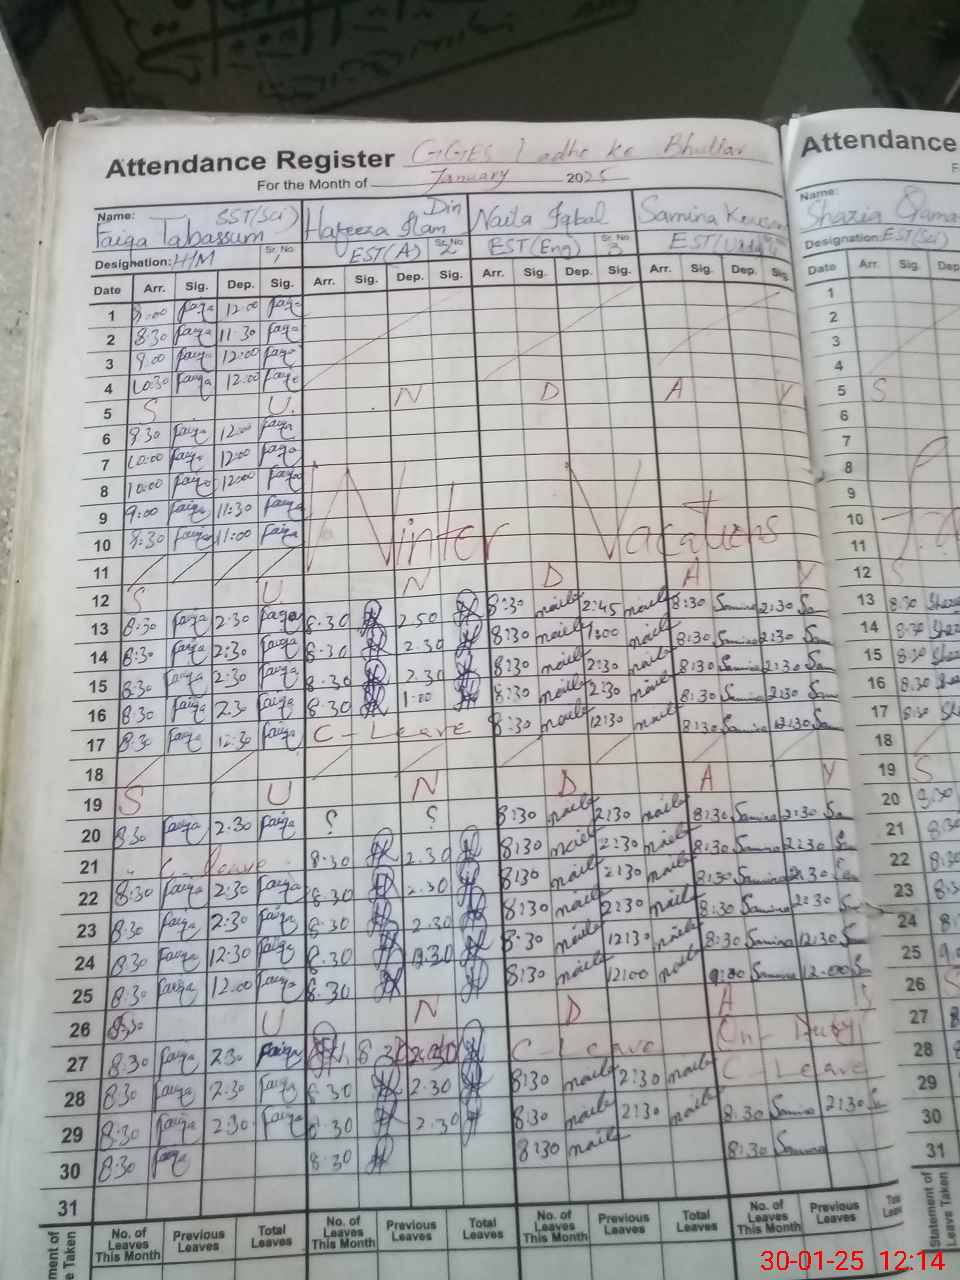 Attendance Register GGES Ladhe ke Bhullar
Attendance
For the Month of January 2025
Name: SST(Sci) Din
Faiqa Tabassum Hafeeza Naila Iqbal Samina
Name: Shazia
Designation: H/M Sr. No 1 EST(A) Sr. No 2 EST(Eng) Sr. No 3 EST(Urdu)
Designation: EST(Sci)
Date Arr. Sig. Dep. Sig. Arr. Sig. Dep. Sig. Arr. Sig. Dep. Sig. Arr. Sig. Dep. Sig.
Date Arr. Sig. Dep
1 9:00 faiqa 12:00 faiqa
2 8:30 faiqa 11:30 faiqa
3 9:00 faiqa 12:00 faiqa
4 10:30 faiqa 12:00 faiqa
5 S U N D A Y
6 9:30 faiqa 12:00 faiqa
7 10:00 faiqa 12:00 faiqa
8 10:00 faiqa 12:00 faiqa
9 9:00 faiqa 11:30 faiqa
10 9:30 faiqa 11:00 faiqa
Winter Vacations
11
12 S U N D A Y
13 8:30 faiqa 2:30 faiqa 8:30 2:50 8:30 naila 2:45 naila 8:30 Samina 2:30 Sam
14 8:30 faiqa 2:30 faiqa 8:30 2:30 8:30 naila 1:00 naila 8:30 Samina 2:30 Sam
15 8:30 faiqa 2:30 faiqa 8:30 2:30 8:30 naila 2:30 naila 8:30 Samina 2:30 Sam
16 8:30 faiqa 2:30 faiqa 8:30 1:00 8:30 naila 2:30 naila 8:30 Samina 2:30 Sam
17 8:30 faiqa 12:30 faiqa C-Leave 8:30 naila 12:30 naila 8:30 Samina 12:30 Sam
18
19 S U N D A Y
20 8:30 faiqa 2:30 faiqa ? ? 8:30 naila 2:30 naila 8:30 Samina 2:30 Sam
21 C-leave 8:30 2:30 8:30 naila 2:30 naila 8:30 Samina 2:30 Sam
22 8:30 faiqa 2:30 faiqa 8:30 2:30 8:30 naila 2:30 naila 8:30 Samina 2:30 Sam
23 8:30 faiqa 2:30 faiqa 8:30 2:30 8:30 naila 2:30 naila 8:30 Samina 2:30 Sam
24 8:30 faiqa 12:30 faiqa 8:30 8:30 naila 12:30 naila 8:30 Samina 12:30 Sam
25 8:30 faiqa 12:00 faiqa 8:30 8:30 naila 12:00 naila Samina 12:00 Sam
26 8:30 U N D A Y
27 8:30 faiqa 2:30 faiqa C-Leave On-Duty
28 8:30 faiqa 2:30 faiqa 8:30 2:30 8:30 naila 2:30 naila C-Leave
29 8:30 faiqa 2:30 faiqa 8:30 2:30 8:30 naila 2:30 naila 8:30 Samina 2:30 Sam
30 8:30 faiqa 8:30 8:30 naila 8:30 Samina
31
1
2
3
4
5 S
6
7
8
9
10
11
12 S
13 8:30
14 8:30
15 8:30
16 8:30
17 8:30
18
19 S
20 8:30
21
22
23
24
25
26 S
27
28
29
30
31
No. of Leaves This Month Previous Leaves Total Leaves No. of Leaves This Month Previous Leaves Total Leaves No. of Leaves This Month Previous Leaves Total Leaves No. of Leaves This Month Previous Leaves
Statement of Leave Taken
30-01-25 12:14